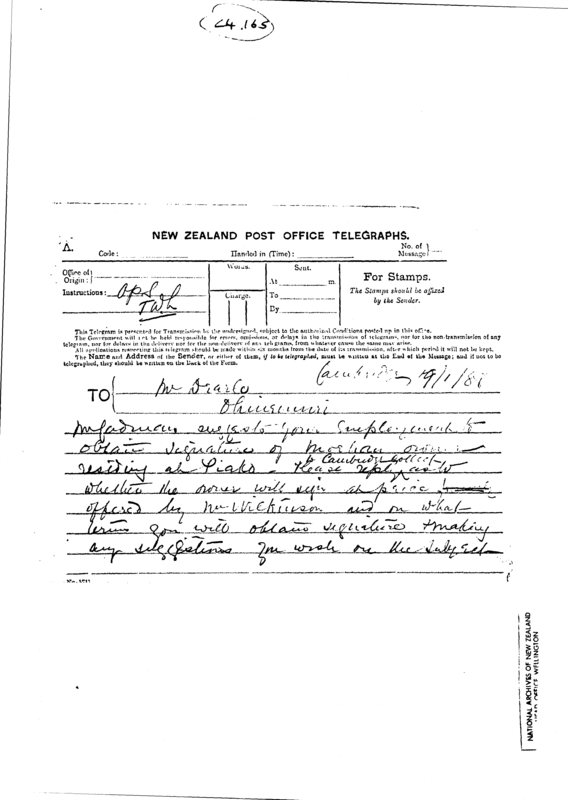 C4.165
NEW ZEALAND POST OFFICE TELEGRAPHS.
A.
Code :
Handed in (Time) :
No. of
Message
Office of
Origin :
Instructions :
Words.
Charge.
Sent.
At m.
To
By
For Stamps.
The Stamps should be affixed
by the Sender.
This Telegram is presented for Transmission by the undersigned, subject to the authorized Conditions posted up in this office.
The Government will not be held responsible for errors, omissions, or delays in the transmission of telegrams, nor for the non-transmission of any
telegram, nor for delays in the delivery nor for the non-delivery of any telegrams, from whatever cause the same may arise.
All applications respecting this telegram should be made within six months from the date of its transmission, after which period it will not be kept.
The Name and Address of the Sender, or either of them, if to be telegraphed, must be written at the End of the Message; and if not to be
telegraphed, they should be written on the Back of the Form.
Cambridge 19/1/81
TO
Mr
Ohinemuri
suggests your employment to
obtain signature of
to Cambridge
residing at Piako Please reply as to
whether the owner will sign at price
offered by Mr Wilkinson and on what
terms you will obtain signature & making
any suggestions you wish on the subject
NATIONAL ARCHIVES OF NEW ZEALAND
HEAD OFFICE WELLINGTON